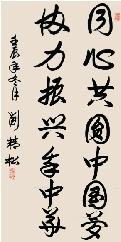 同心共圆中国梦
协力振兴大中华
壬辰年冬月 刘楚松